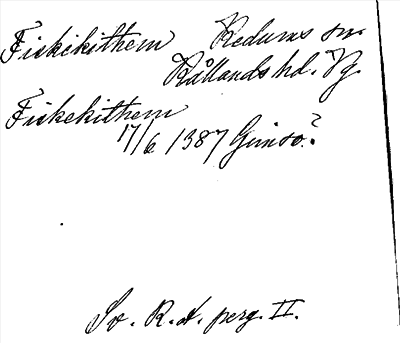 Fiskikithem Redums sn.
Kållands hd. Vg.
Fiskekithem
17/6 1387 Gimsö?
Sv. R.A. perg. II.